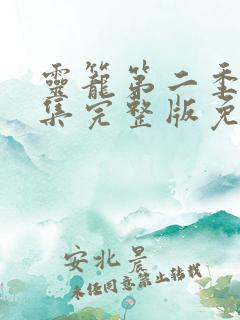 靈籠第二季
集完整版免
安北晨
未经同意禁止转载